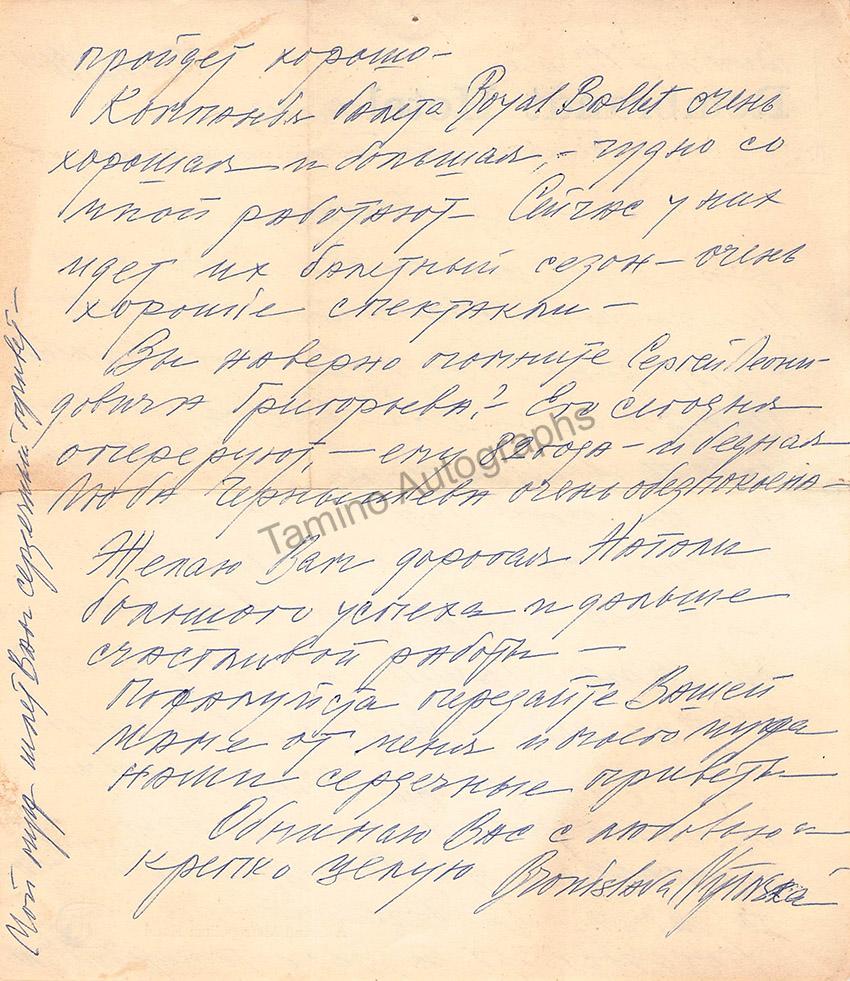 пройдет хорошо—
Компанія балета Royal Ballet очень
хорошая и большая, – чудно со
мной работают— Сейчас у них
идет их балетный сезон— очень
хорошіе спектакли—
Вы наверно помните Сергей Леони-
довича Григорьева? — Его сегодня
оперируют, — ему года — и бедная
Люба Чернышева очень обезпокоена—
Желаю Вам дорогая Натали
большого успеха и дальше
счастливой работы —
Пожалуйста передайте Вашей
маме от меня и моего мужа
наши сердечные приветы—
Обнимаю Вас с любовью и
крепко целую Bronislava Nijinska
Мой муж шлет Вам сердечный привет—
Tamino Autographs